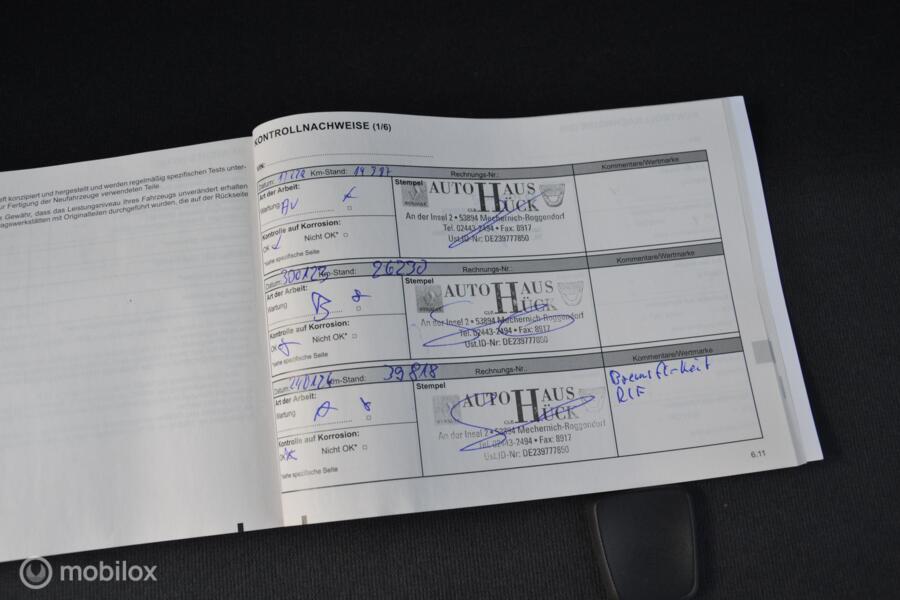 eft konzipiert und hergestellt und werden regelmäßig spezifischen Tests unter-
ur Fertigung der Neufahrzeuge verwendeten Teile.
Gewähr, dass das Leistungsniveau ihres Fahrzeugs unverändert erhalten
agswerkstätten mit Originalteilen durchgeführt wurden, die auf der Rückseite
KONTROLLNACHWEISE (1/6)
VIN:
Datum: Km-Stand: Rechnungs-Nr.: Kommentare/Wertmarke
Art der Arbeit: Stempel
Wartung AV
AUTO HAUS
HÜCK
An der Insel 2 • 53894 Mechernich-Roggendorf
Tel. 02443-2494 • Fax: 8917
Ust.ID-Nr: DE239777850
Kontrolle auf Korrosion:
OK Nicht OK*
*siehe spezifische Seite
Datum: 300123 Km-Stand: 26230 Rechnungs-Nr.: Kommentare/Wertmarke
Art der Arbeit: Stempel
Wartung B
AUTO HAUS
HÜCK
An der Insel 2 • 53894 Mechernich-Roggendorf
Tel. 02443-2494 • Fax: 8917
Ust.ID-Nr: DE239777850
Kontrolle auf Korrosion:
OK Nicht OK*
*siehe spezifische Seite
Datum: 240124 Km-Stand: 39818 Rechnungs-Nr.: Kommentare/Wertmarke
Art der Arbeit: Stempel
Wartung A
AUTO HAUS
HÜCK
An der Insel 2 • 53894 Mechernich-Roggendorf
Tel. 02443-2494 • Fax: 8917
Ust.ID-Nr: DE239777850
Kontrolle auf Korrosion:
OK Nicht OK*
*siehe spezifische Seite
6.11
mobilox